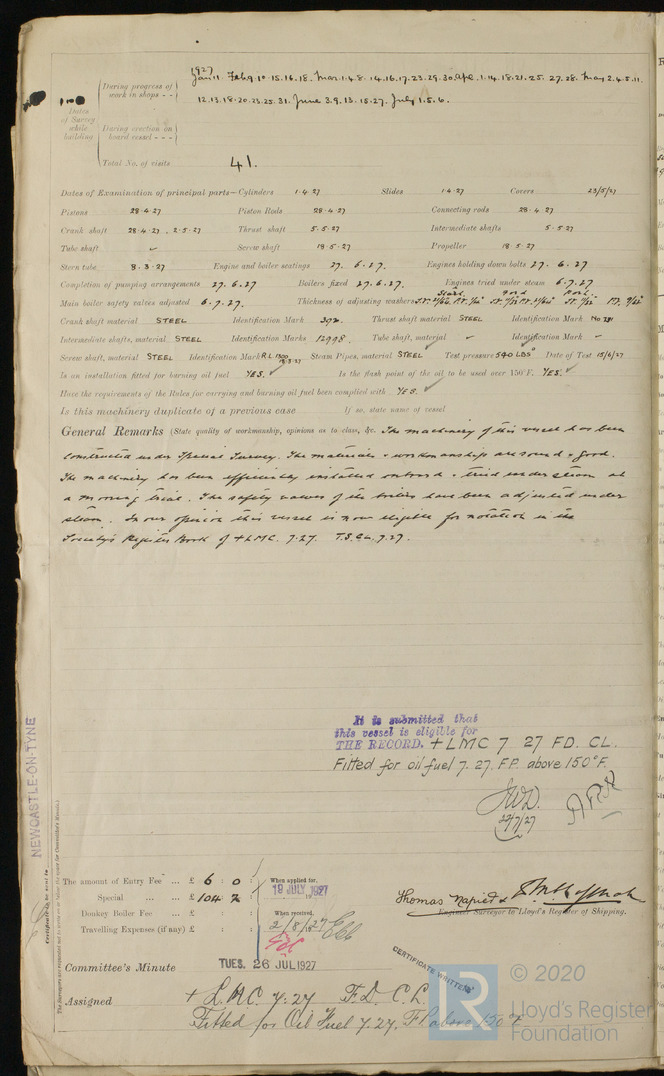 1927
During progress of work in shops - - Jan. 11. Feb. 9. 10. 15. 16. 18. Mar. 1. 4. 8. 14. 16. 17. 23. 29. 30. Apr. 1. 14. 18. 21. 25. 27. 28. May 2. 4. 5. 11.
12. 13. 18. 20. 23. 25. 31. June 3. 9. 13. 15. 27. July 1. 5. 6.
Dates of Survey while building
During erection on board vessel - - -
Total No. of visits 41.
Dates of Examination of principal parts—Cylinders 1.4.27 Slides 1.4.27 Covers 23/5/27
Pistons 28.4.27 Piston Rods 28.4.27 Connecting rods 28.4.27
Crank shaft 28.4.27, 2.5.27 Thrust shaft 5.5.27 Intermediate shafts 5.5.27
Tube shaft Screw shaft 18.5.27 Propeller 18.5.27
Stern tube 8.3.27 Engine and boiler seatings 27.6.27. Engines holding down bolts 27.6.27
Completion of pumping arrangements 27.6.27 Boilers fixed 27.6.27. Engines tried under steam 6.7.27
Main boiler safety valves adjusted 6.7.27. Thickness of adjusting washers
Crank shaft material STEEL Identification Mark 392. Thrust shaft material STEEL Identification Mark No 391
Intermediate shafts, material STEEL Identification Marks 12998. Tube shaft, material - Identification Mark -
Screw shaft, material STEEL Identification Mark R.L 1300 18.5.27 Steam Pipes, material STEEL Test pressure 540 LBS Date of Test 15/6/27
Is an installation fitted for burning oil fuel YES. ✓ Is the flash point of the oil to be used over 150°F. YES. ✓
Have the requirements of the Rules for carrying and burning oil fuel been complied with YES. ✓
Is this machinery duplicate of a previous case If so, state name of vessel
General Remarks (State quality of workmanship, opinions as to class, &c. The machinery of this vessel has been
constructed under Special Survey. The materials & workmanship are sound & good.
The machinery has been efficiently installed onboard & tried under steam at
a mooring trial. The safety valves of the boilers have been adjusted under
steam. In our opinion this vessel is now eligible for notation in the
Society's Register Book of +LMC. 7.27. T.S. CL. 7.27.
It is submitted that
this vessel is eligible for
THE RECORD. + LMC 7 27 FD. CL.
Fitted for oil fuel 7.27. F.P. above 150°F.
NEWCASTLE-ON-TYNE
The amount of Entry Fee ... £ 6 : 0 : When applied for,
Special ... ... £ 104 : 19 JULY 1927
Donkey Boiler Fee ... £ : : When received,
Travelling Expenses (if any) £ : : 2/8/27
Thomas Napier &
Engineer Surveyor to Lloyd's Register of Shipping.
Committee's Minute TUES. 26 JUL 1927
CERTIFICATE WRITTEN
Assigned + L.M.C. 7.27 F.D. C.L.
Fitted for Oil Fuel 7.27. F.P. above 150°F.
LR
© 2020
Lloyd's Register
Foundation